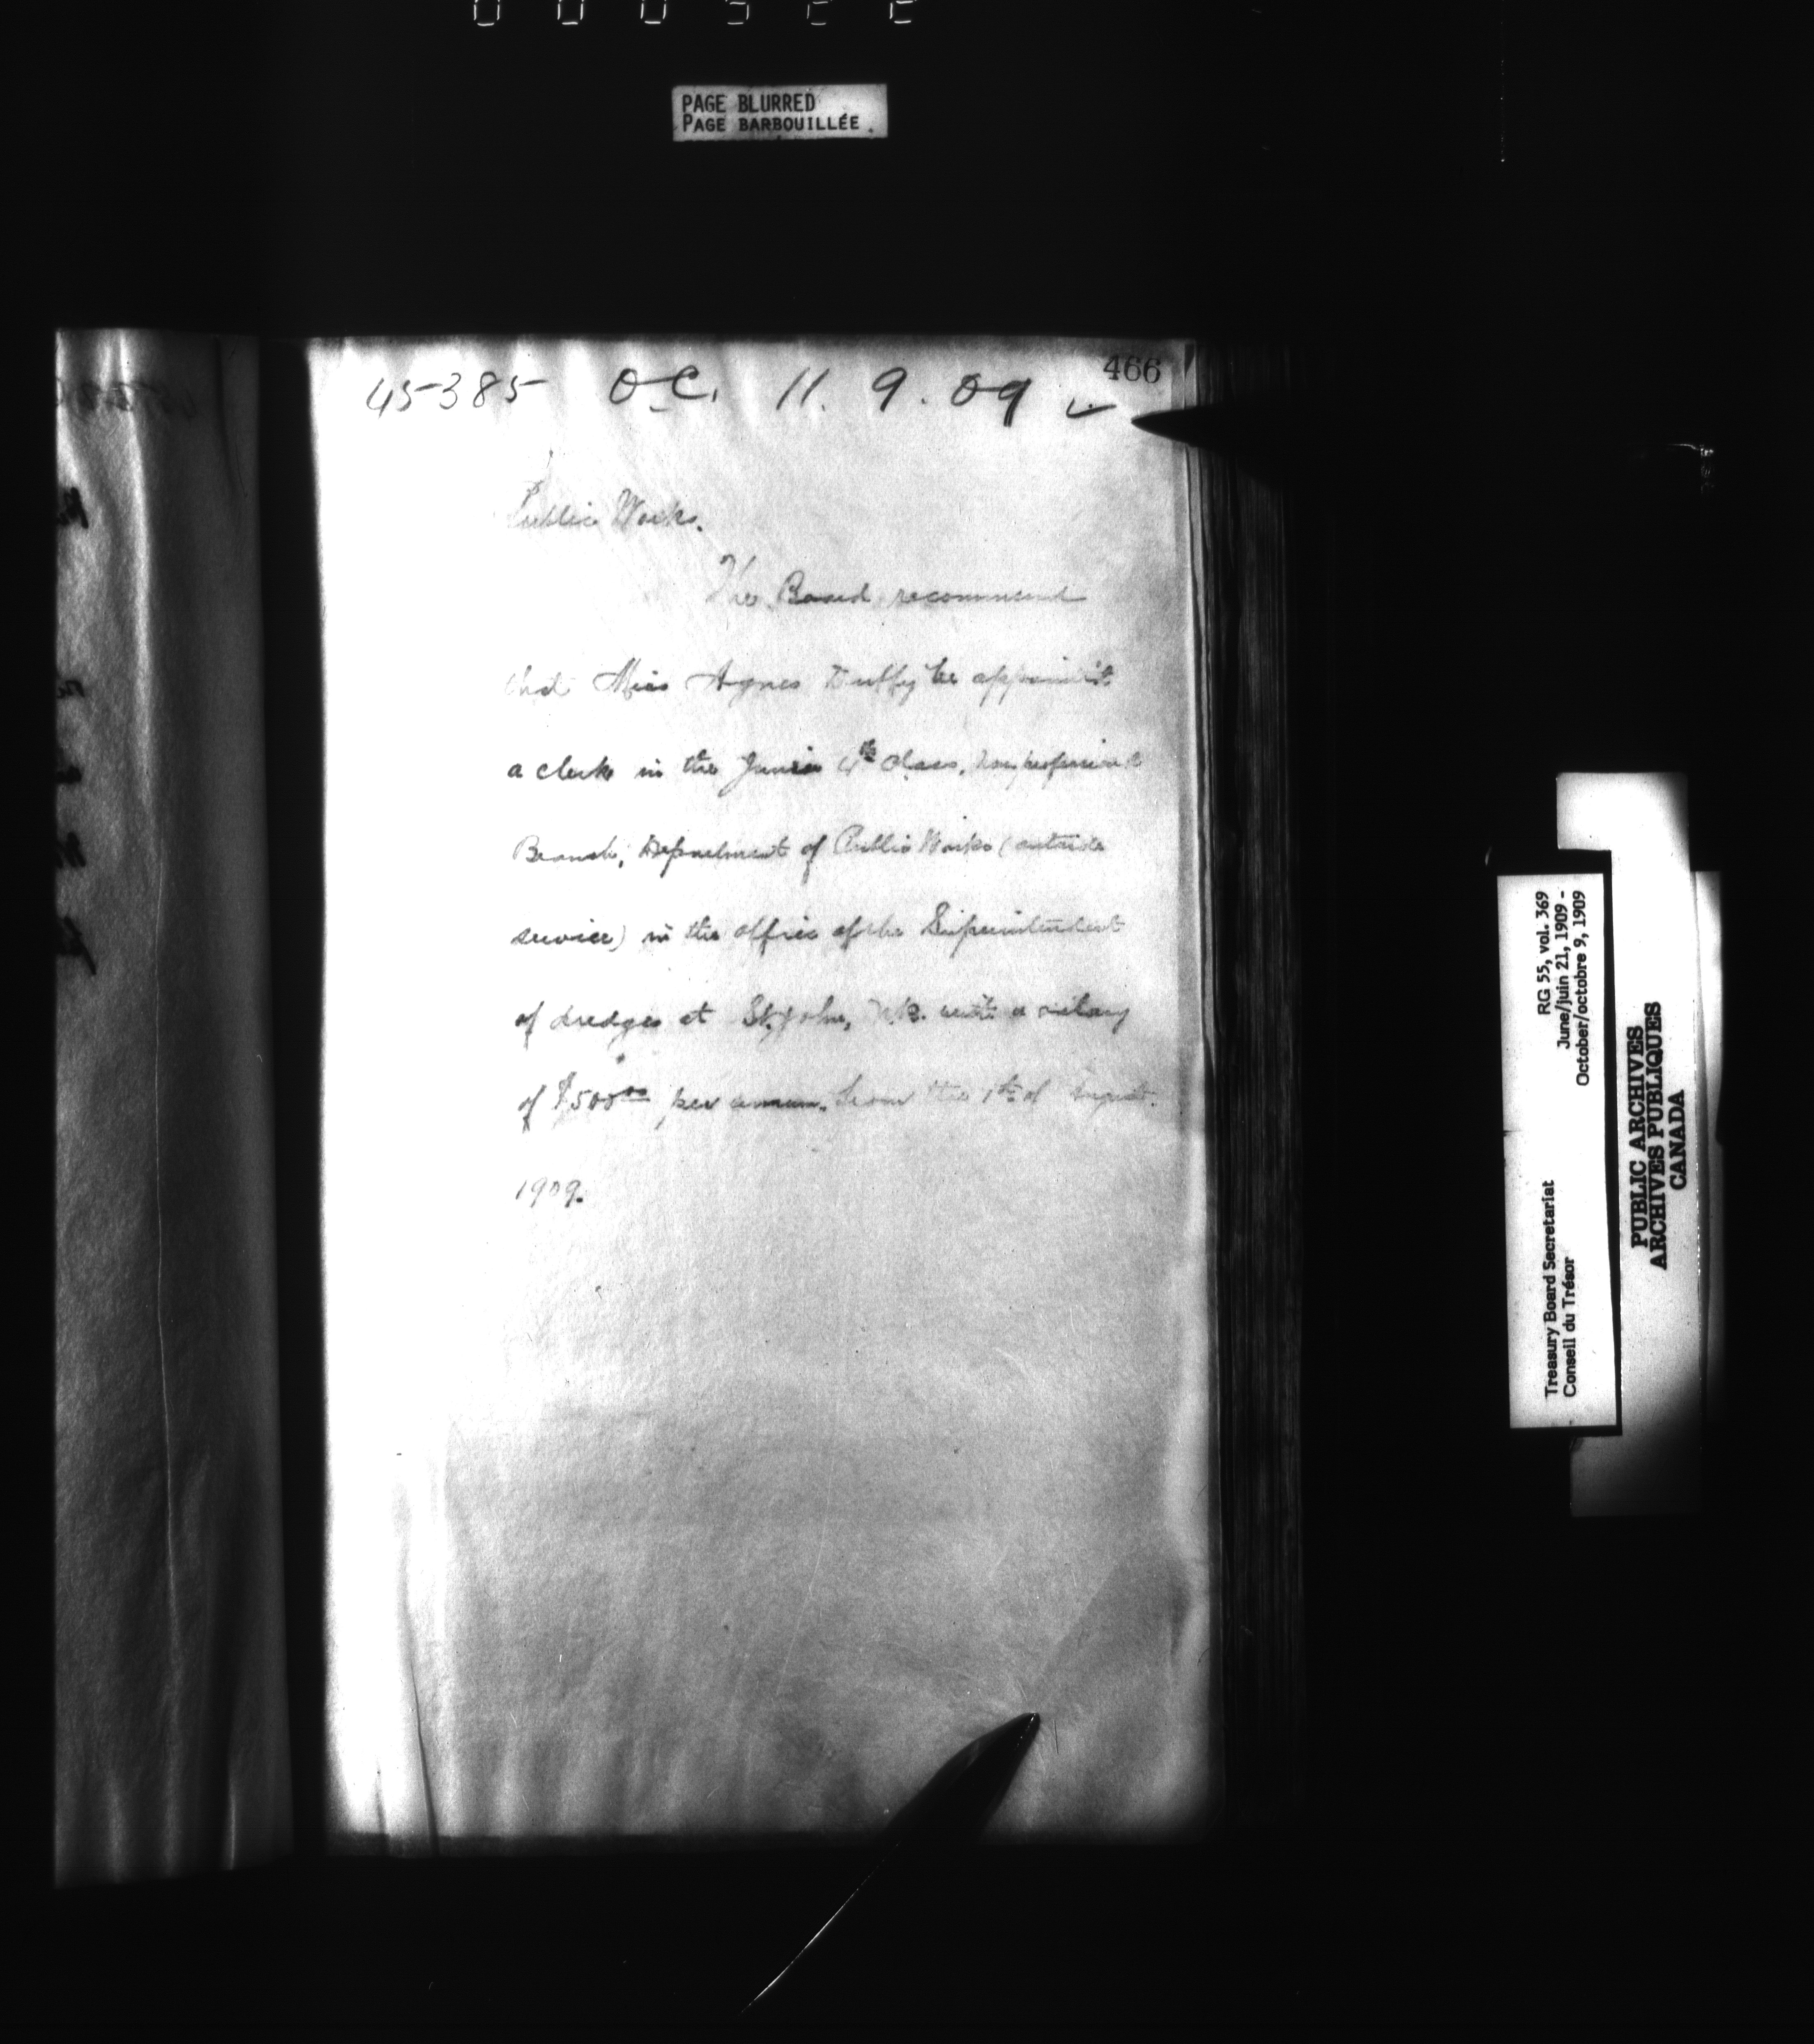 PAGE BLURRED
PAGE BARBOUILLÉE
466
45385 O.C. 11. 9. 09
Public Works.
The Board recommend
that Miss Agnes Duffy be appointed
a clerk in the Junior 4th Class, Nonprofessional
Branch, Department of Public Works (outside
service) in the office of the Superintendent
of dredges at St. John, N.B. with a salary
of $500.00 per annum, from the 1st of August.
1909.
RG 55, vol. 369
June/juin 21, 1909 -
October/octobre 9, 1909
Treasury Board Secretariat
Conseil du Trésor
PUBLIC ARCHIVES
ARCHIVES PUBLIQUES
CANADA